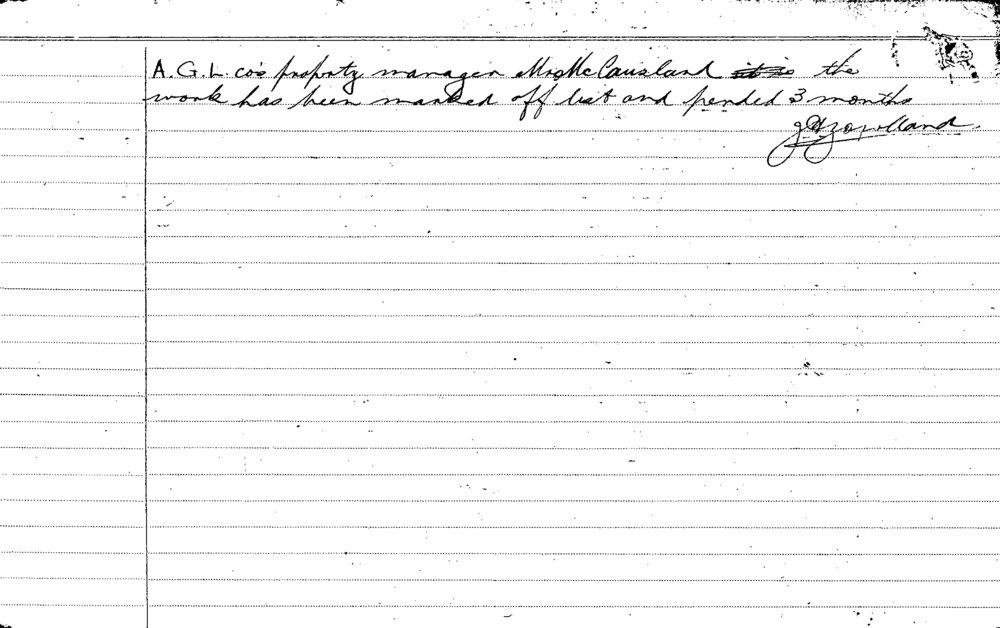 A.G.L. co's property manager Mr McCausland it is the
work has been marked off list and pended 3 months